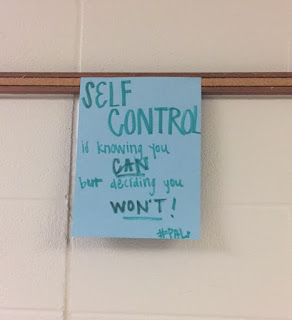 SELF
CONTROL
is knowing you
CAN
but deciding you
WON'T!
#PAL